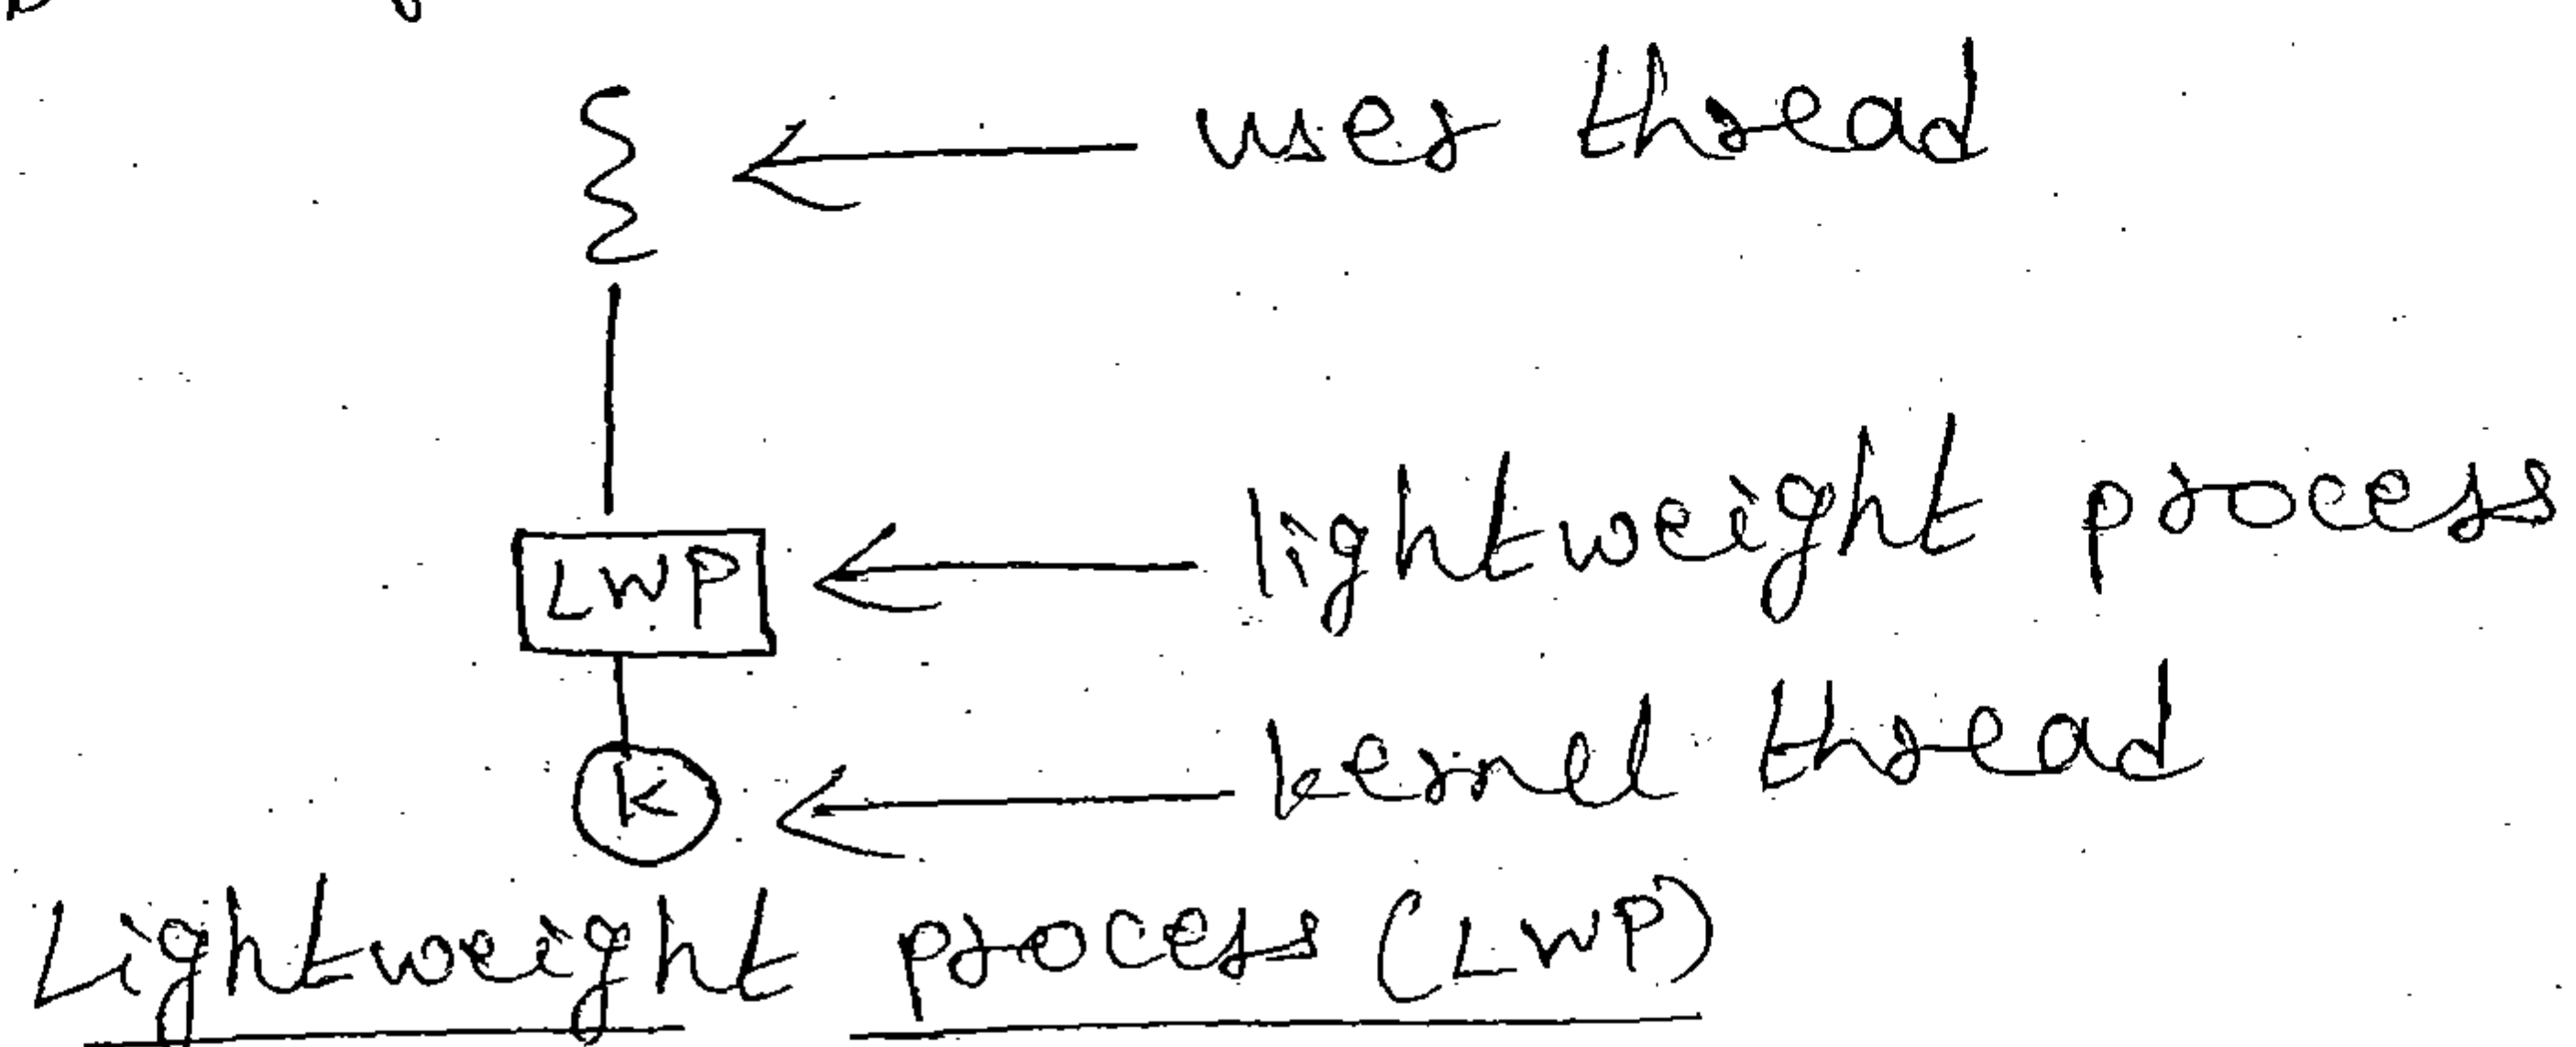 user thread
LWP
lightweight process
K
kernel thread
Lightweight process (LWP)